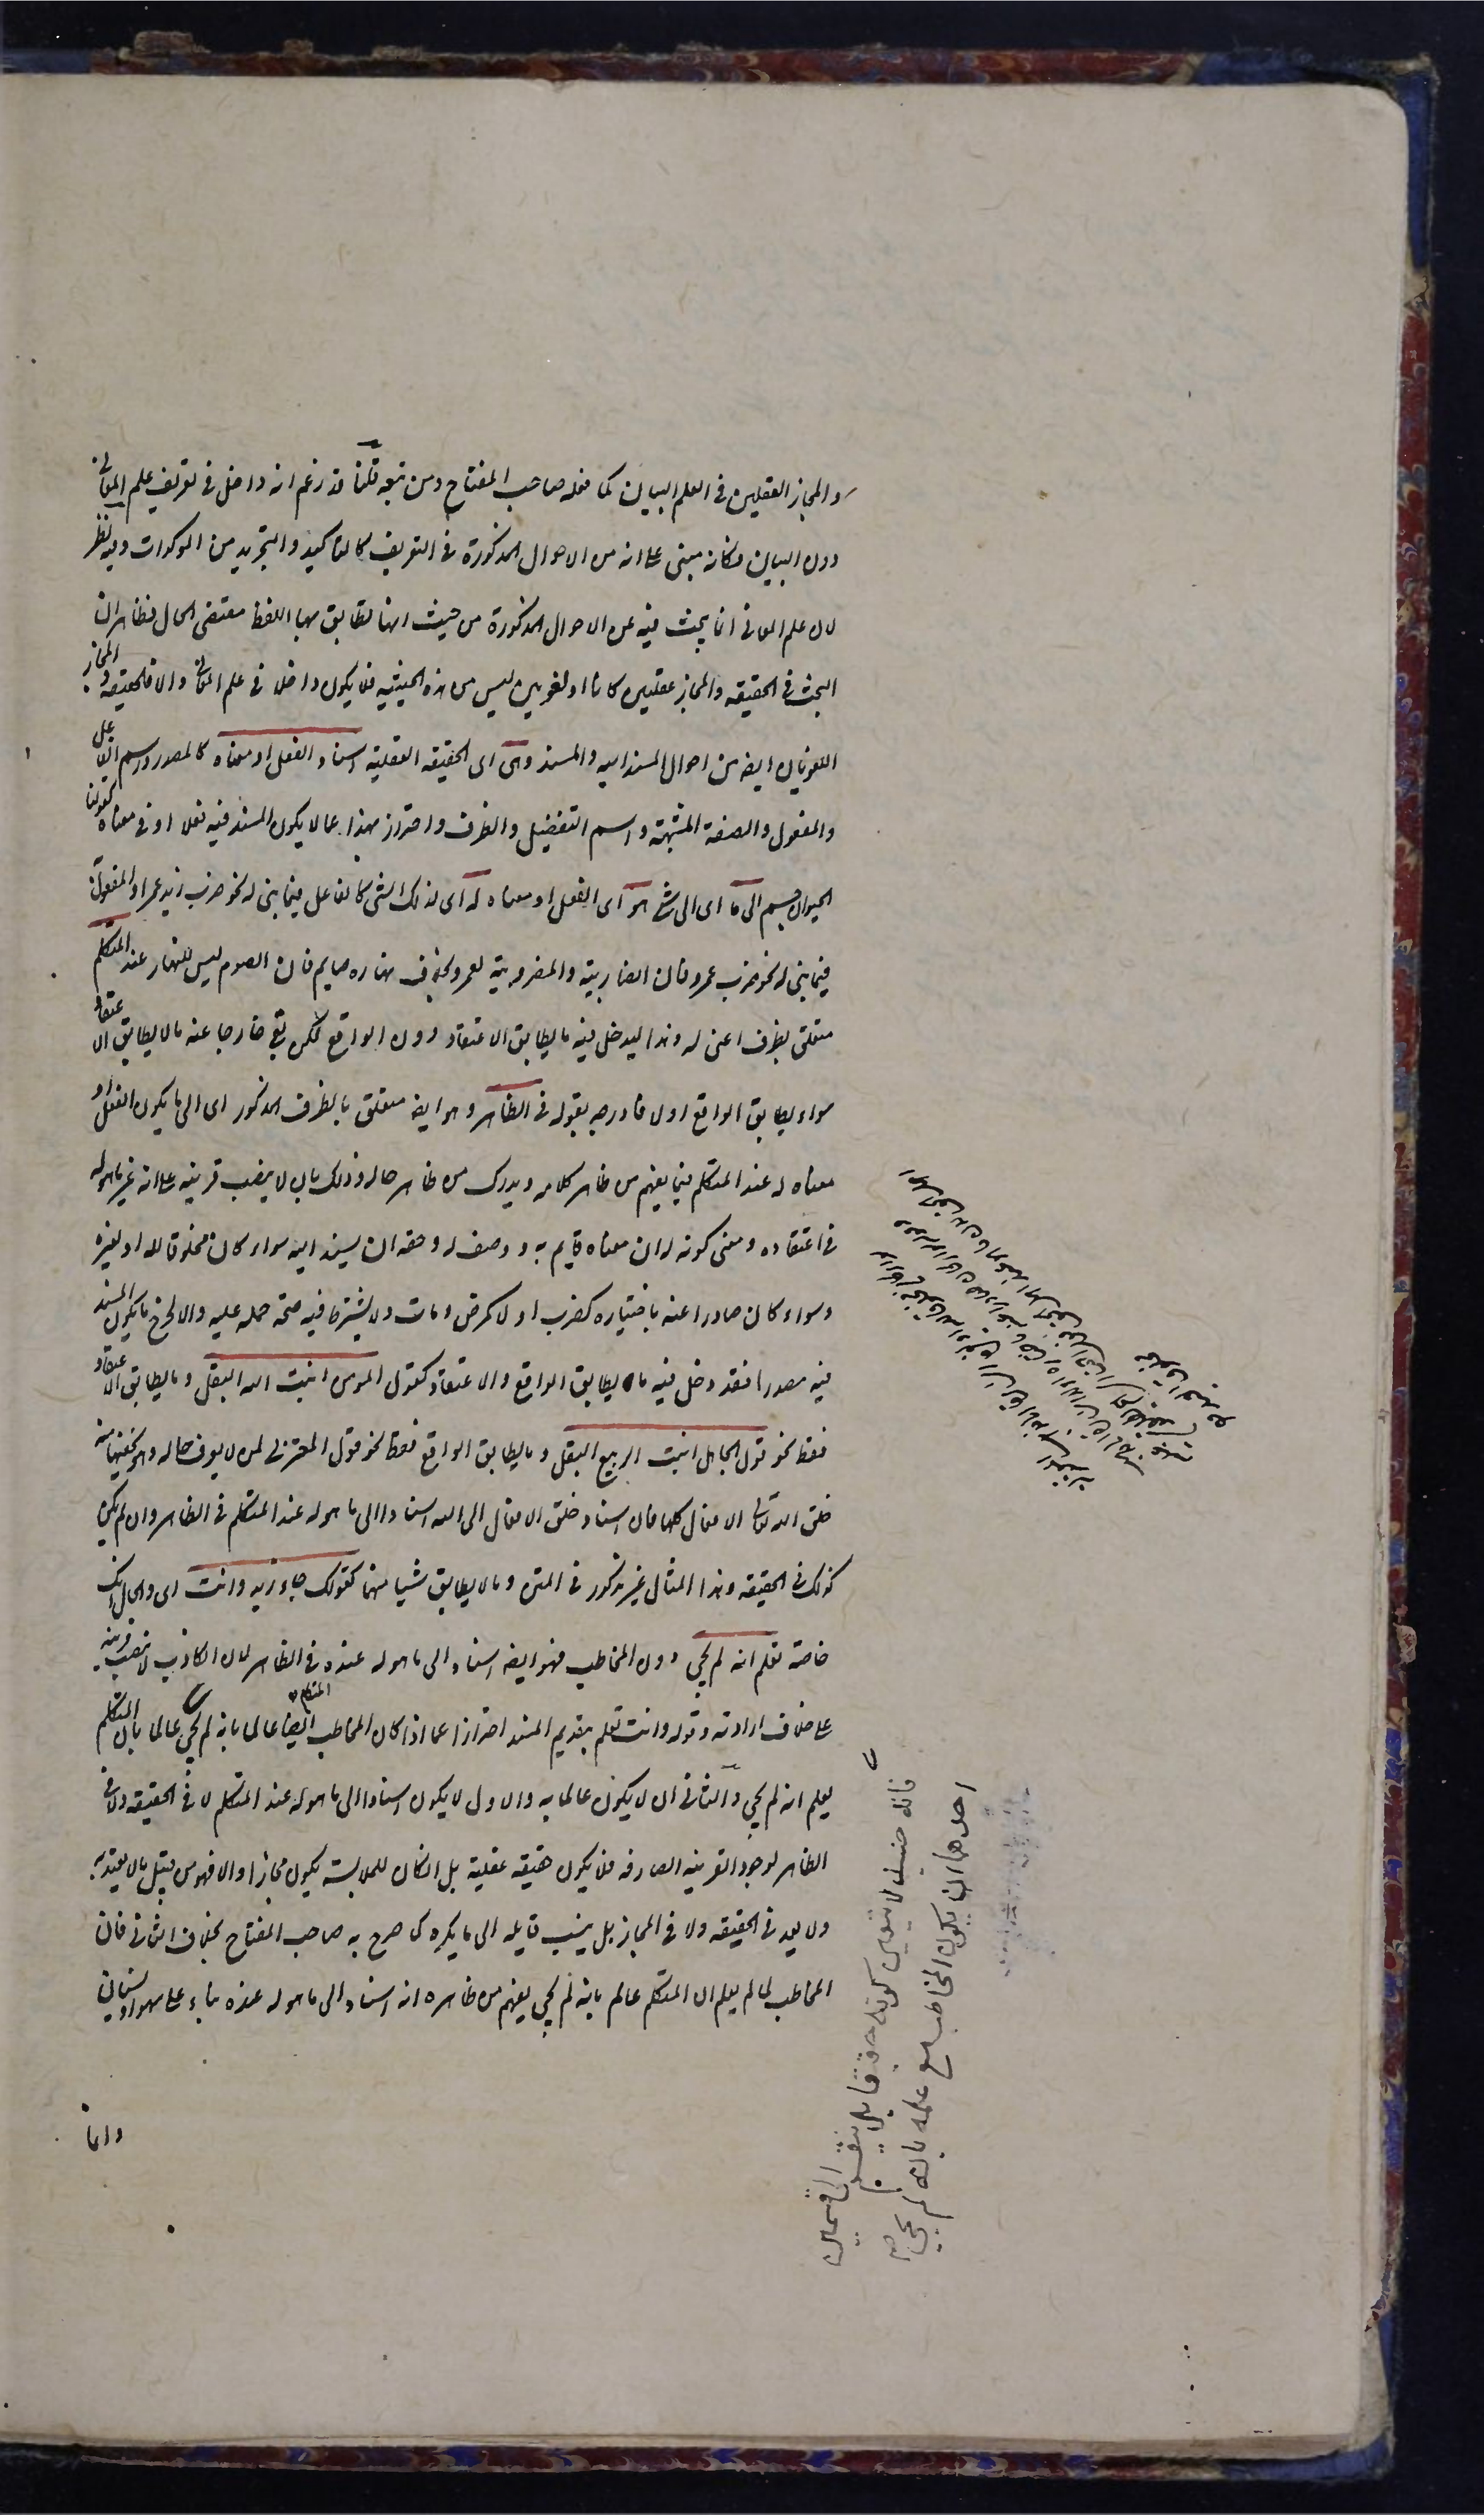 والمجاز العقليين في العلم البيان كما فعله صاحب المفتاح ومن تبعه قلنا قد زعم انه داخل في تعريف علم المعاني
دون البيان فكانه مبنى على انه من الاحوال المذكورة في التعريف كالتاكيد والتجريد من الموكدات وفيه نظر
لان علم المعاني انما يبحث فيه عن الاحوال المذكورة من حيث انها تطابق بها اللفظ مقتضى الحال فظاهر ان
البحث في الحقيقه والمجاز عقليين كانا او لغويين ليس من هذه الحيثيه فلا يكون داخلا في علم المعاني والا فالحقيقه والمجاز
اللغويان ايضا من احوال المسند اليه والمسند وهى اى الحقيقه العقلية اسناد الفعل او معناه كالمصدر واسم الفاعل
والمفعول والصفة المشبهة واسم التفضيل والظرف واحترز بهذا عما لا يكون المسند فيه فعلا او في معناه كقولنا
الحيوان جسم الى ما اى الى شئ هو اى الفعل او معناه له اى لذلك الشئ كالفاعل فيما بنى له نحو ضرب زيد عمرا والمفعول
فيما بنى له نحو ضرب عمرو فان الضاربية والمضروبية لعمرو بخلاف نهاره صايم فان الصوم ليس للنهار عند المتكلم
متعلق بظرف اعنى له وهذا ليدخل فيه ما يطابق الاعتقاد دون الواقع لكن بقى خارجا عنه ما لا يطابق الاعتقاد
سواء يطابق الواقع او لا فادرجه بقوله في الظاهر وهو ايضا متعلق بالظرف المذكور اى الى ما يكون الفعل او
معناه له عند المتكلم فيما يفهم من ظاهر كلامه ويدرك من ظاهر حاله وذلك بان لا ينصب قرينه على انه غير ما هو له
في اعتقاده ومعنى كونه له ان معناه قايم به ووصف له وحقه ان يسند اليه سواء كان مخلوقا لله او لغيره
وسواء كان صادرا عنه باختياره كضرب او لا كمرض ومات ولا يشترط فيه صحة حمله عليه والا لخرج ما يكون المسند
فيه مصدرا فقد دخل فيه ما يطابق الواقع والاعتقاد كقول المومن انبت الله البقل وما يطابق الاعتقاد
فقط نحو قول الجاهل انبت الربيع البقل وما يطابق الواقع فقط نحو قول المعتزلي لمن لا يعرف حاله وهو يخفيها منه
خلق الله تعالى الافعال كلها فان اسناد خلق الافعال الى الله اسناد الى ما هو له عند المتكلم في الظاهر وان لم يكن
كذلك في الحقيقه وهذا المثال غير مذكور في المتن وما لا يطابق شيا منهما كقولك جاء زيد وانت اى والحال انك
خاصة تعلم انه لم يجئ دون المخاطب فهو ايضا اسناد الى ما هو له عنده في الظاهر لان الكاذب لا ينصب قرينه
على خلاف ارادته وقوله وانت تعلم بتقديم المسند احترازا عما اذا كان المخاطب ايضا عالما بانه لم يجئ عالما بان المتكلم
المتكلم
يعلم انه لم يجئ والثاني ان لا يكون عالما به والاول لا يكون اسنادا الى ما هو له عند المتكلم لا في الحقيقه ولا في
الظاهر لوجود القرينه الصارفه فلا يكون حقيقه عقلية بل ان كان لملابسة يكون مجازا والا فهو من قبيل ما لا يعتد به
ولا يعد في الحقيقه ولا في المجاز بل ينسب قايله الى ما يكره كما صرح به صاحب المفتاح بخلاف الثاني فان
المخاطب لما لم يعلم ان المتكلم عالم بانه لم يجئ يفهم من ظاهره انه اسناد الى ما هو له عنده بناء على سهو او نسيان
واما
فانه حينئذ لا يتعين كونه حقيقة بل ينقسم الى قسمين
احدهما ان يكون المخاطب مع علمه بانه لم يجئ